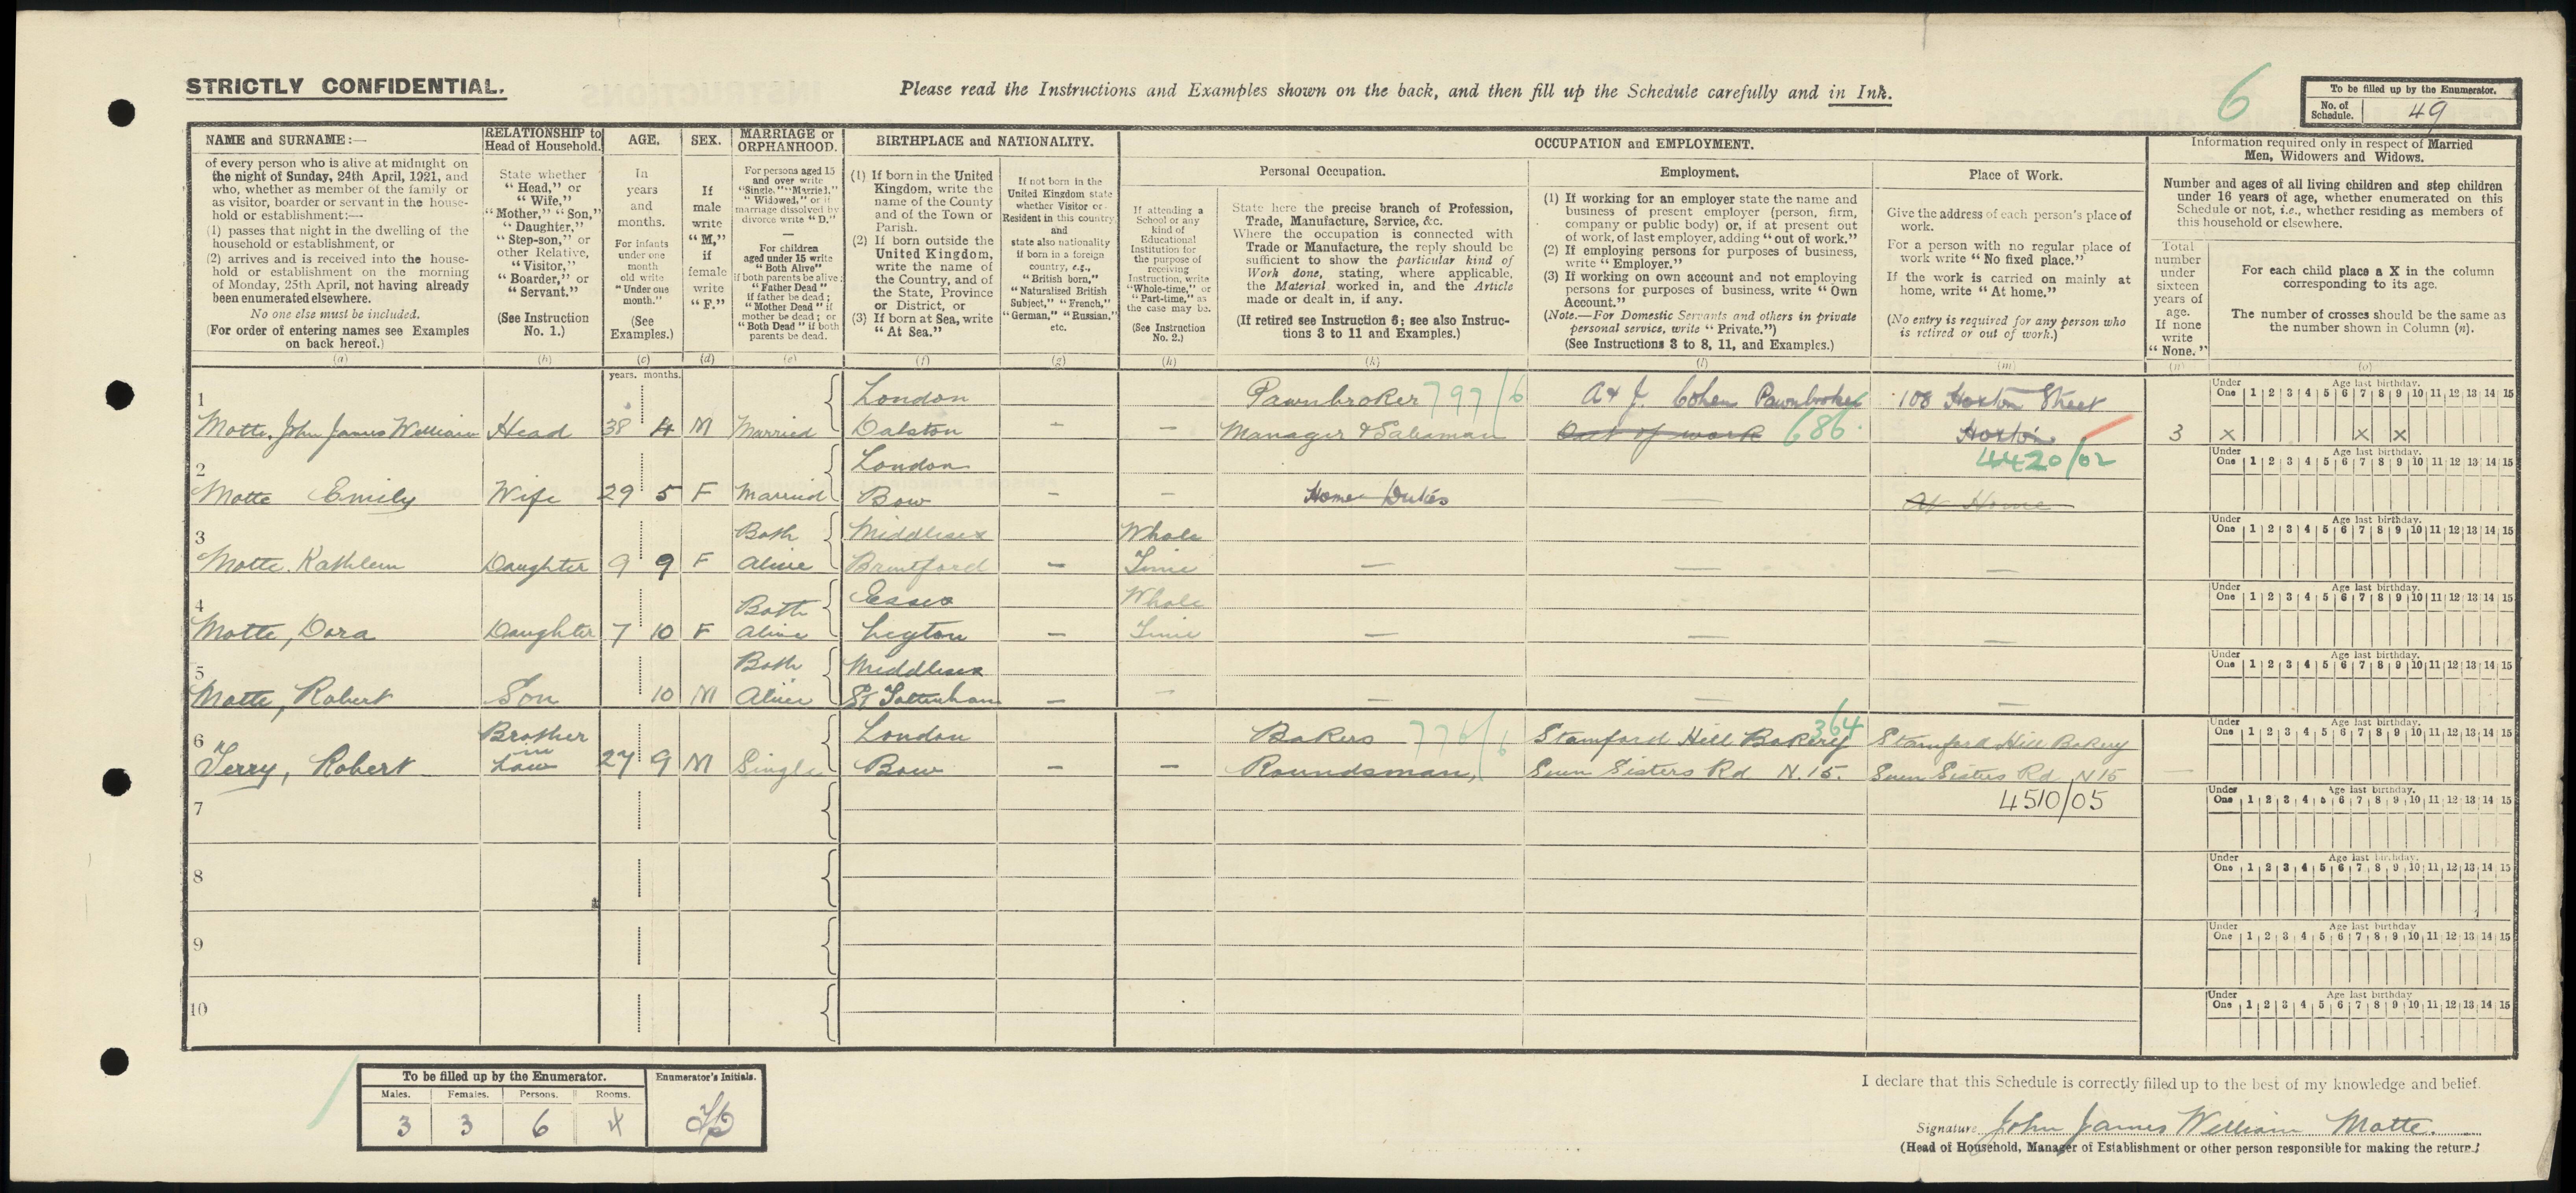 STRICTLY CONFIDENTIAL.
Please read the Instructions and Examples shown on the back, and then fill up the Schedule carefully and in Ink.
6
To be filled up by the Enumerator.
No. of Schedule. 49
NAME and SURNAME:—
of every person who is alive at midnight on
the night of Sunday, 24th April, 1921, and
who, whether as member of the family or
as visitor, boarder or servant in the house-
hold or establishment:—
(1) passes that night in the dwelling of the
household or establishment, or
(2) arrives and is received into the house-
hold or establishment on the morning
of Monday, 25th April, not having already
been enumerated elsewhere.
No one else must be included.
(For order of entering names see Examples
on back hereof.)
(a)
RELATIONSHIP to
Head of Household.
State whether
"Head," or
"Wife,"
"Mother," "Son,"
"Daughter,"
"Step-son," or
other Relative,
"Visitor,"
"Boarder," or
"Servant."
(See Instruction
No. 1.)
(b)
AGE.
In
years
and
months.
For infants
under one
month
old write
"Under one
month."
(See
Examples.)
(c)
years. months.
SEX.
If
male
write
"M,"
if
female
write
"F."
(d)
MARRIAGE or
ORPHANHOOD.
For persons aged 15
and over write
"Single," "Married,"
"Widowed," or if
marriage dissolved by
divorce write "D."
—
For children
aged under 15 write
"Both Alive"
if both parents be alive;
"Father Dead"
if father be dead;
"Mother Dead" if
mother be dead; or
"Both Dead" if both
parents be dead.
(e)
BIRTHPLACE and NATIONALITY.
(1) If born in the United
Kingdom, write the
name of the County
and of the Town or
Parish.
(2) If born outside the
United Kingdom,
write the name of
the Country, and of
the State, Province
or District, or
(3) If born at Sea, write
"At Sea."
(f)
If not born in the
United Kingdom state
whether Visitor or
Resident in this country,
and
state also nationality
if born in a foreign
country, e.g.,
"British born,"
"Naturalized British
Subject," "French,"
"German," "Russian,"
etc.
(g)
OCCUPATION and EMPLOYMENT.
If attending a
School or any
kind of
Educational
Institution for
the purpose of
receiving
Instruction, write
"Whole-time," or
"Part-time," as
the case may be.
(See Instruction
No. 2.)
(h)
Personal Occupation.
State here the precise branch of Profession,
Trade, Manufacture, Service, &c.
Where the occupation is connected with
Trade or Manufacture, the reply should be
sufficient to show the particular kind of
Work done, stating, where applicable,
the Material worked in, and the Article
made or dealt in, if any.
(If retired see Instruction 6; see also Instruc-
tions 3 to 11 and Examples.)
(k)
Employment.
(1) If working for an employer state the name and
business of present employer (person, firm,
company or public body) or, if at present out
of work, of last employer, adding "out of work."
(2) If employing persons for purposes of business,
write "Employer."
(3) If working on own account and not employing
persons for purposes of business, write "Own
Account."
(Note.—For Domestic Servants and others in private
personal service, write "Private.")
(See Instructions 3 to 8, 11, and Examples.)
(l)
Place of Work.
Give the address of each person's place of
work.
For a person with no regular place of
work write "No fixed place."
If the work is carried on mainly at
home, write "At home."
(No entry is required for any person who
is retired or out of work.)
(m)
Information required only in respect of Married
Men, Widowers and Widows.
Number and ages of all living children and step children
under 16 years of age, whether enumerated on this
Schedule or not, i.e., whether residing as members of
this household or elsewhere.
Total
number
under
sixteen
years of
age.
If none
write
"None."
(n)
For each child place a X in the column
corresponding to its age.
The number of crosses should be the same as
the number shown in Column (n).
(o)
1 London Pawnbroker 797/6 A & J. Cohen Pawnbroker 108 Hoxton Street
Motte, John James William Head 38 4 M Married Dalston – – Manager & Salesman Out of work 686 Hoxton 3 x x x
Under One 1 2 3 4 5 6 7 8 9 10 11 12 13 14 15 Age last birthday.
2 London 4420/02
Motte Emily Wife 29 5 F Married Bow – – Home Duties — At Home
Under One 1 2 3 4 5 6 7 8 9 10 11 12 13 14 15 Age last birthday.
3 Both Middlesex Whole
Motte, Kathleen Daughter 9 9 F Alive Brentford – Time — — —
Under One 1 2 3 4 5 6 7 8 9 10 11 12 13 14 15 Age last birthday.
4 Both Essex Whole
Motte, Dora Daughter 7 10 F Alive Leyton – Time — — —
Under One 1 2 3 4 5 6 7 8 9 10 11 12 13 14 15 Age last birthday.
5 Both Middlesex
Motte, Robert Son 10 M Alive Tottenham – – — — —
Under One 1 2 3 4 5 6 7 8 9 10 11 12 13 14 15 Age last birthday.
6 Brother in London Bakers 776/6 Stamford Hill Bakery 364 Stamford Hill Bakery
Terry, Robert Law 27 9 M Single Bow – – Roundsman, Seven Sisters Rd N.15. Seven Sisters Rd N15 —
Under One 1 2 3 4 5 6 7 8 9 10 11 12 13 14 15 Age last birthday.
7 4510/05
Under One 1 2 3 4 5 6 7 8 9 10 11 12 13 14 15 Age last birthday.
8
Under One 1 2 3 4 5 6 7 8 9 10 11 12 13 14 15 Age last birthday.
9
Under One 1 2 3 4 5 6 7 8 9 10 11 12 13 14 15 Age last birthday
10
Under One 1 2 3 4 5 6 7 8 9 10 11 12 13 14 15 Age last birthday
To be filled up by the Enumerator.
Males. Females. Persons. Rooms.
3 3 6 4
Enumerator's Initials.
I declare that this Schedule is correctly filled up to the best of my knowledge and belief.
Signature John James William Motte.
(Head of Household, Manager of Establishment or other person responsible for making the return.)